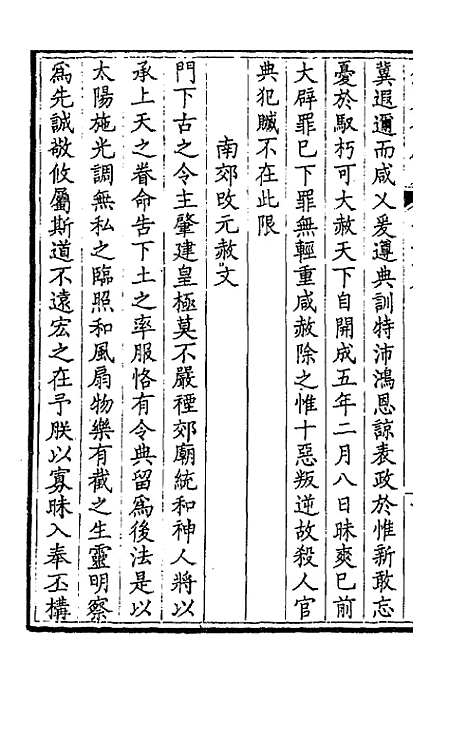 冀遐邇而咸乂爰遵典訓特沛鴻恩諒表政於惟新敢忘
憂於馭朽可大赦天下自開成五年二月八日昧爽已前
大辟罪已下罪無輕重咸赦除之惟十惡叛逆故殺人官
典犯贓不在此限
南郊改元赦文
門下古之令主肇建皇極莫不嚴禋郊廟統和神人將以
承上天之眷命告下土之率服恪有令典留爲後法是以
太陽施光調無私之臨照和風扇物樂有截之生靈明察
爲先誠敬攸屬斯道不遠宏之在予朕以寡昧入奉丕構